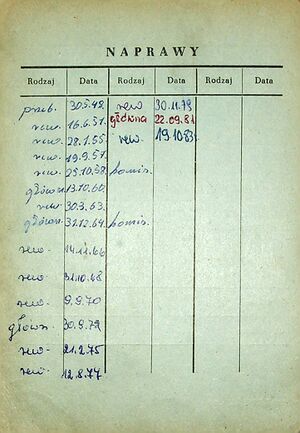 NAPRAWY
Rodzaj Data Rodzaj Data Rodzaj Data
przeb. 30.5.49. rew 30.11.79
rew. 16.6.51. główna 22.09.81
rew. 28.1.55. rew. 19.10.83
rew. 19.9.57.
rew. 25.10.58. komis.
główn. 13.10.60.
rew. 30.3.63.
główn. 31.12.64. komis.
rew. 14.12.66
rew. 31.10.68
rew. 9.9.70
główn. 30.9.72
rew 21.2.75
rew 12.8.77